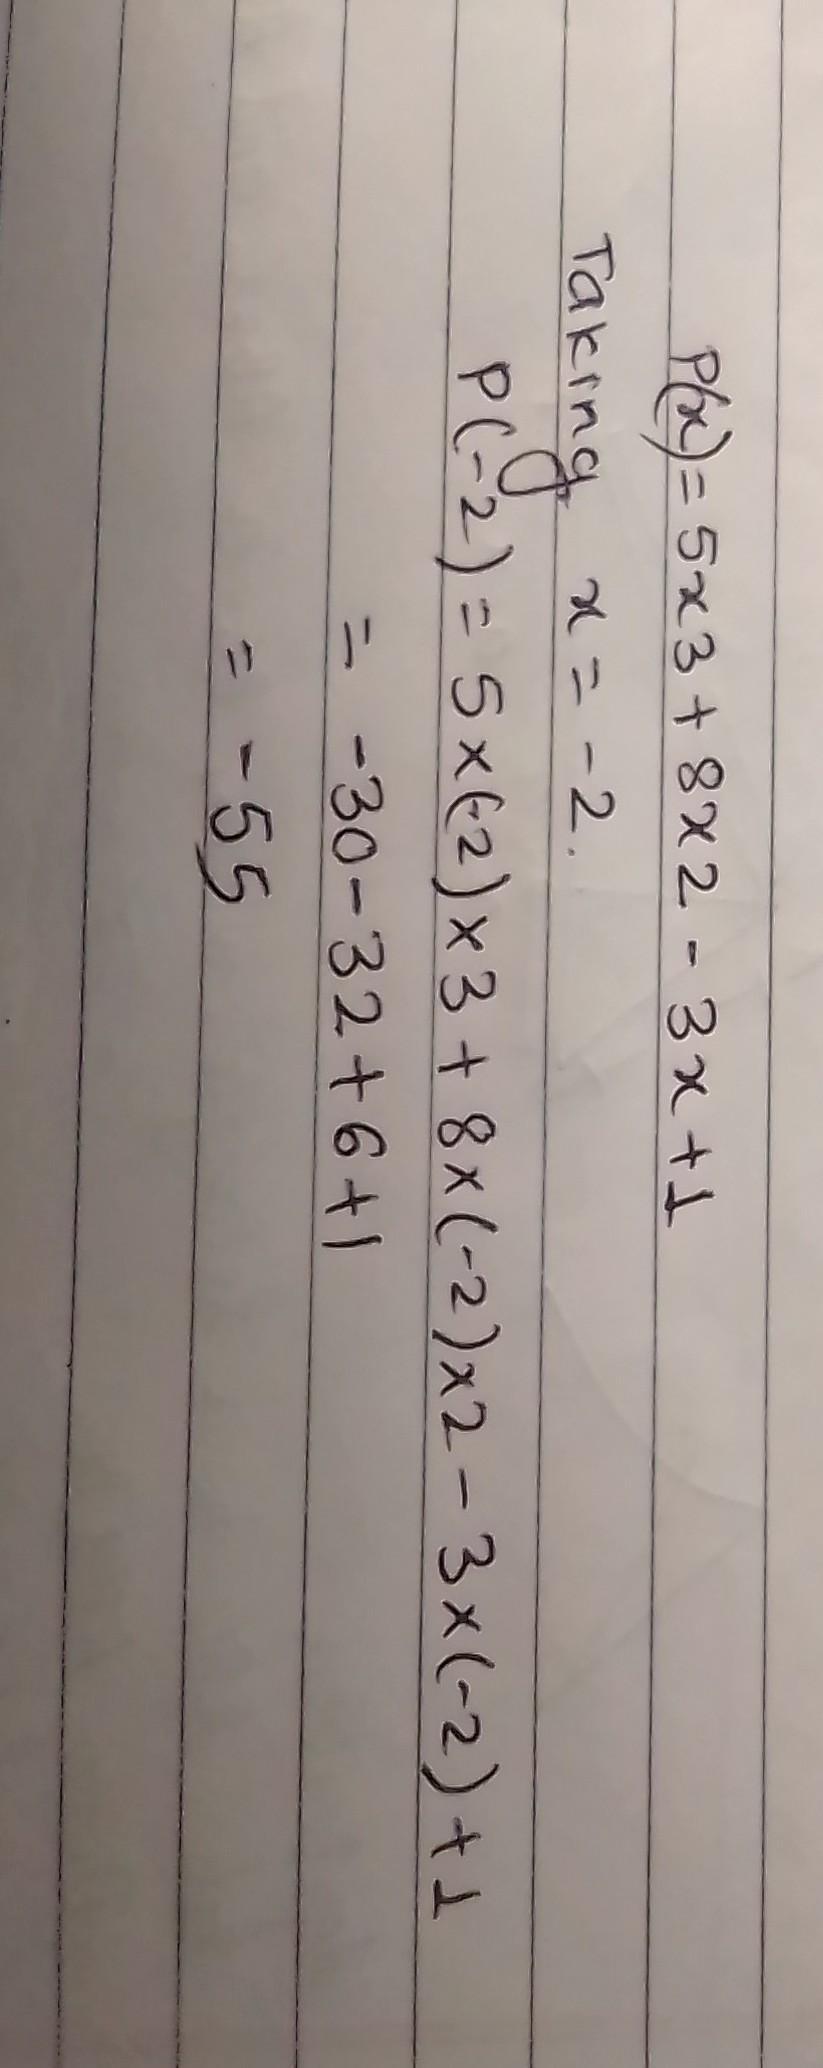 P(x) = 5x3 + 8x2 - 3x + 1
Taking x = -2.
P(-2) = 5x(-2)x3 + 8x(-2)x2 - 3x(-2) + 1
= -30 - 32 + 6 + 1
= - 55